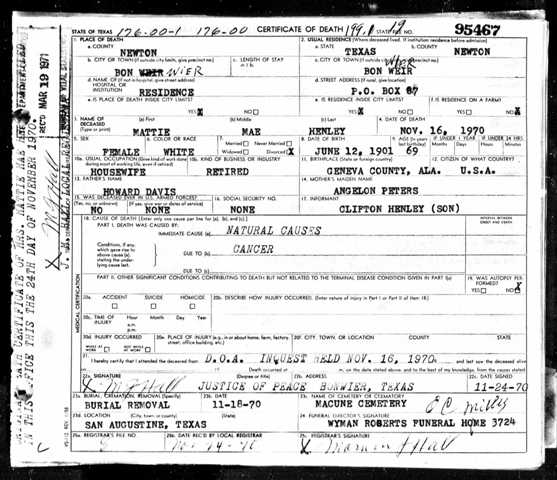 STATE OF TEXAS 176.00-1 176-00 CERTIFICATE OF DEATH 199.1 19 STATE FILE NO. 95467
1. PLACE OF DEATH 2. USUAL RESIDENCE (Where deceased lived. If institution: residence before admission)
a. COUNTY NEWTON a. STATE TEXAS b. COUNTY NEWTON
b. CITY OR TOWN (If outside city limits, give precinct no.) c. LENGTH OF STAY in 1 b. c. CITY OR TOWN (If outside city limits, give precinct no.)
BON WEIR WIER BON WEIR WIER
d. NAME OF (If not in hospital, give street address) HOSPITAL OR INSTITUTION RESIDENCE d. STREET ADDRESS (If rural, give location) P.O. BOX 87
e. IS PLACE OF DEATH INSIDE CITY LIMITS? YES X NO e. IS RESIDENCE INSIDE CITY LIMITS? YES X NO f. IS RESIDENCE ON A FARM? YES NO
3. NAME OF DECEASED (Type or print) (a) First MATTIE (b) Middle MAE (c) Last HENLEY 4. DATE OF DEATH NOV. 16, 1970
5. SEX FEMALE 6. COLOR OR RACE WHITE 7. Married Never Married Widowed Divorced X 8. DATE OF BIRTH JUNE 12, 1901 9. AGE (In years last birthday) 69 IF UNDER 1 YEAR IF UNDER 24 HRS.
10a. USUAL OCCUPATION (Give kind of work done during most of working life, even if retired) HOUSEWIFE 10b. KIND OF BUSINESS OR INDUSTRY RETIRED 11. BIRTHPLACE (State or foreign country) GENEVA COUNTY, ALA. 12. CITIZEN OF WHAT COUNTRY? U.S.A.
13. FATHER'S NAME HOWARD DAVIS 14. MOTHER'S MAIDEN NAME ANGELON PETERS
15. WAS DECEASED EVER IN U.S. ARMED FORCES? (Yes, no, or unknown) NO (If yes, give war or dates of service) NONE 16. SOCIAL SECURITY NO. NONE 17. INFORMANT CLIFTON HENLEY (SON)
18. CAUSE OF DEATH [Enter only one cause per line for (a), (b), and (c).] INTERVAL BETWEEN ONSET AND DEATH
PART I. DEATH WAS CAUSED BY:
IMMEDIATE CAUSE (a) NATURAL CAUSES
Conditions, if any, which gave rise to above cause (a), stating the underlying cause last.
DUE TO (b) CANCER
DUE TO (c)
PART II. OTHER SIGNIFICANT CONDITIONS CONTRIBUTING TO DEATH BUT NOT RELATED TO THE TERMINAL DISEASE CONDITION GIVEN IN PART I(a) 19. WAS AUTOPSY PERFORMED? YES NO X
MEDICAL CERTIFICATION
20a. ACCIDENT SUICIDE HOMICIDE 20b. DESCRIBE HOW INJURY OCCURRED. (Enter nature of injury in Part I or Part II of item 18.)
20c. TIME OF INJURY Hour a.m. p.m. Month Day Year
20d. INJURY OCCURRED WHILE AT WORK NOT WHILE AT WORK 20e. PLACE OF INJURY (e.g., in or about home, farm, factory, street, office building, etc.) 20f. CITY, TOWN, OR LOCATION COUNTY STATE
21. I hereby certify that I attended the deceased from D.O.A. INQUEST HELD NOV. 16, 1970 and last saw the deceased alive
Death occurred at m. on the date stated above, and to the best of my knowledge, from the causes stated.
22a. SIGNATURE (Degree or title) 22b. ADDRESS 22c. DATE SIGNED
X M J Hall JUSTICE OF PEACE BONWIER, TEXAS 11-24-70
23a. BURIAL, CREMATION, REMOVAL (Specify) BURIAL REMOVAL 23b. DATE 11-18-70 23c. NAME OF CEMETERY OR CREMATORY MACUNE CEMETERY
23d. LOCATION (City, town, or county) (State) SAN AUGUSTINE, TEXAS 24. FUNERAL DIRECTOR'S SIGNATURE E C Miller WYMAN ROBERTS FUNERAL HOME 3724
25a. REGISTRAR'S FILE NO. 25b. DATE REC'D BY LOCAL REGISTRAR 25c. REGISTRAR'S SIGNATURE
REC'D MAR 19 1971
DEATH CERTIFICATE OF MRS. MATTIE MAE
IN THIS OFFICE THIS THE 24TH DAY OF NOVEMBER 1970.
X M J Hall